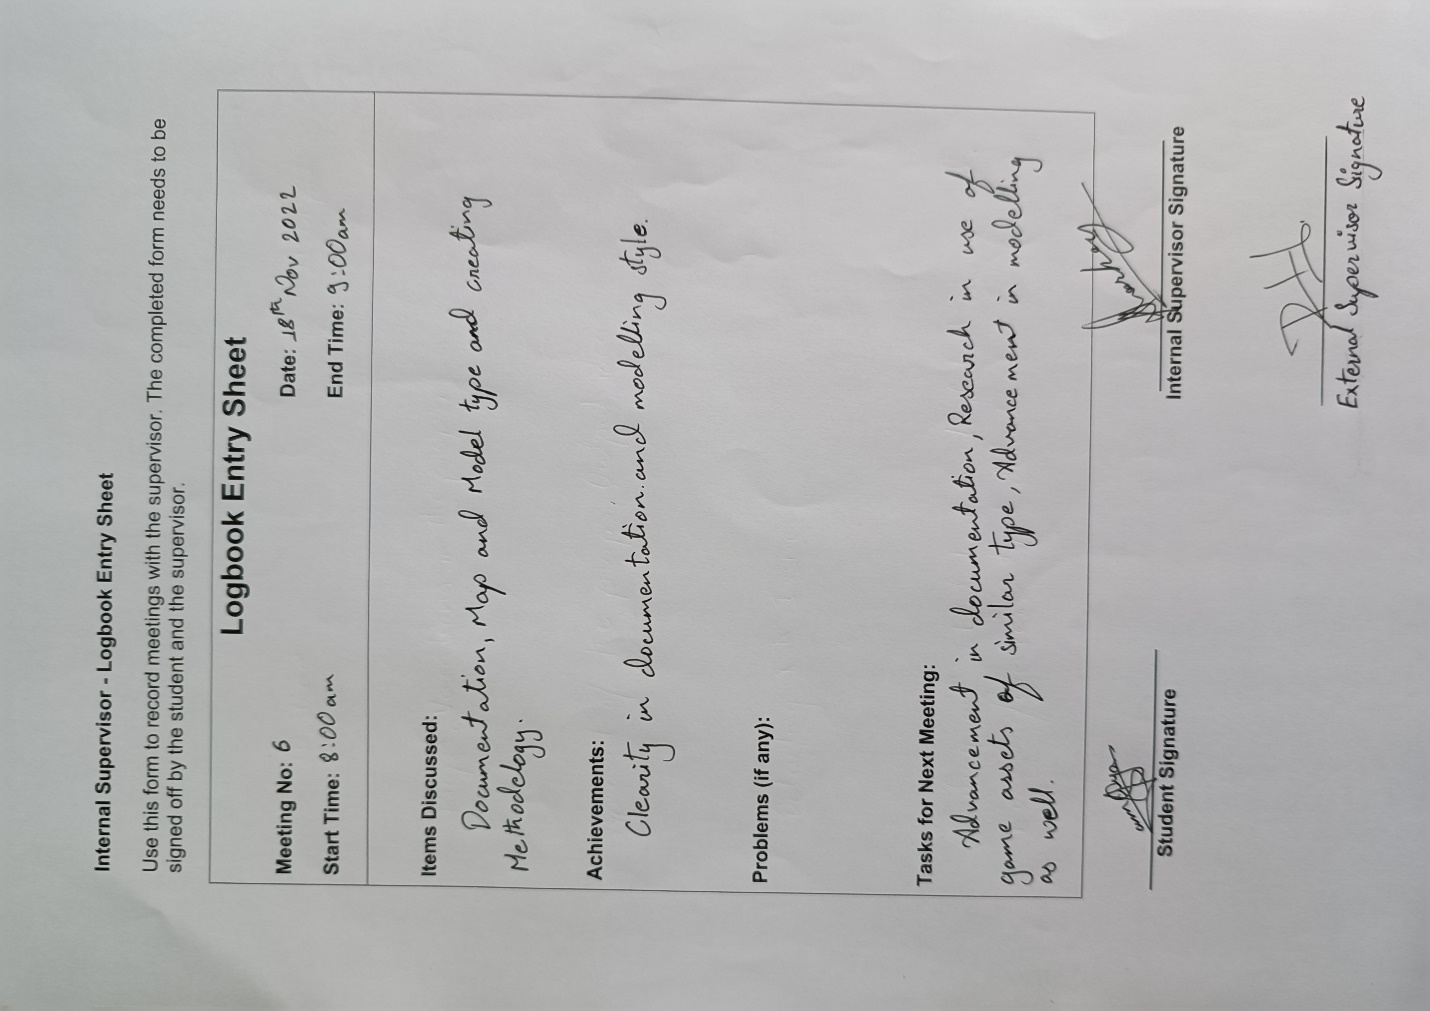 Internal Supervisor - Logbook Entry Sheet
Use this form to record meetings with the supervisor. The completed form needs to be
signed off by the student and the supervisor.
Logbook Entry Sheet
Meeting No: 6 Date: 18th Nov 2022
Start Time: 8:00 am End Time: 9:00am
Items Discussed:
Documentation, Map and Model type and creating
Methodology.
Achievements:
Clearity in documentation and modelling style.
Problems (if any):
Tasks for Next Meeting:
Advancement in documentation, Research in use of
game assets of similar type, Advancement in modelling
as well.
Student Signature Internal Supervisor Signature
External Supervisor Signature